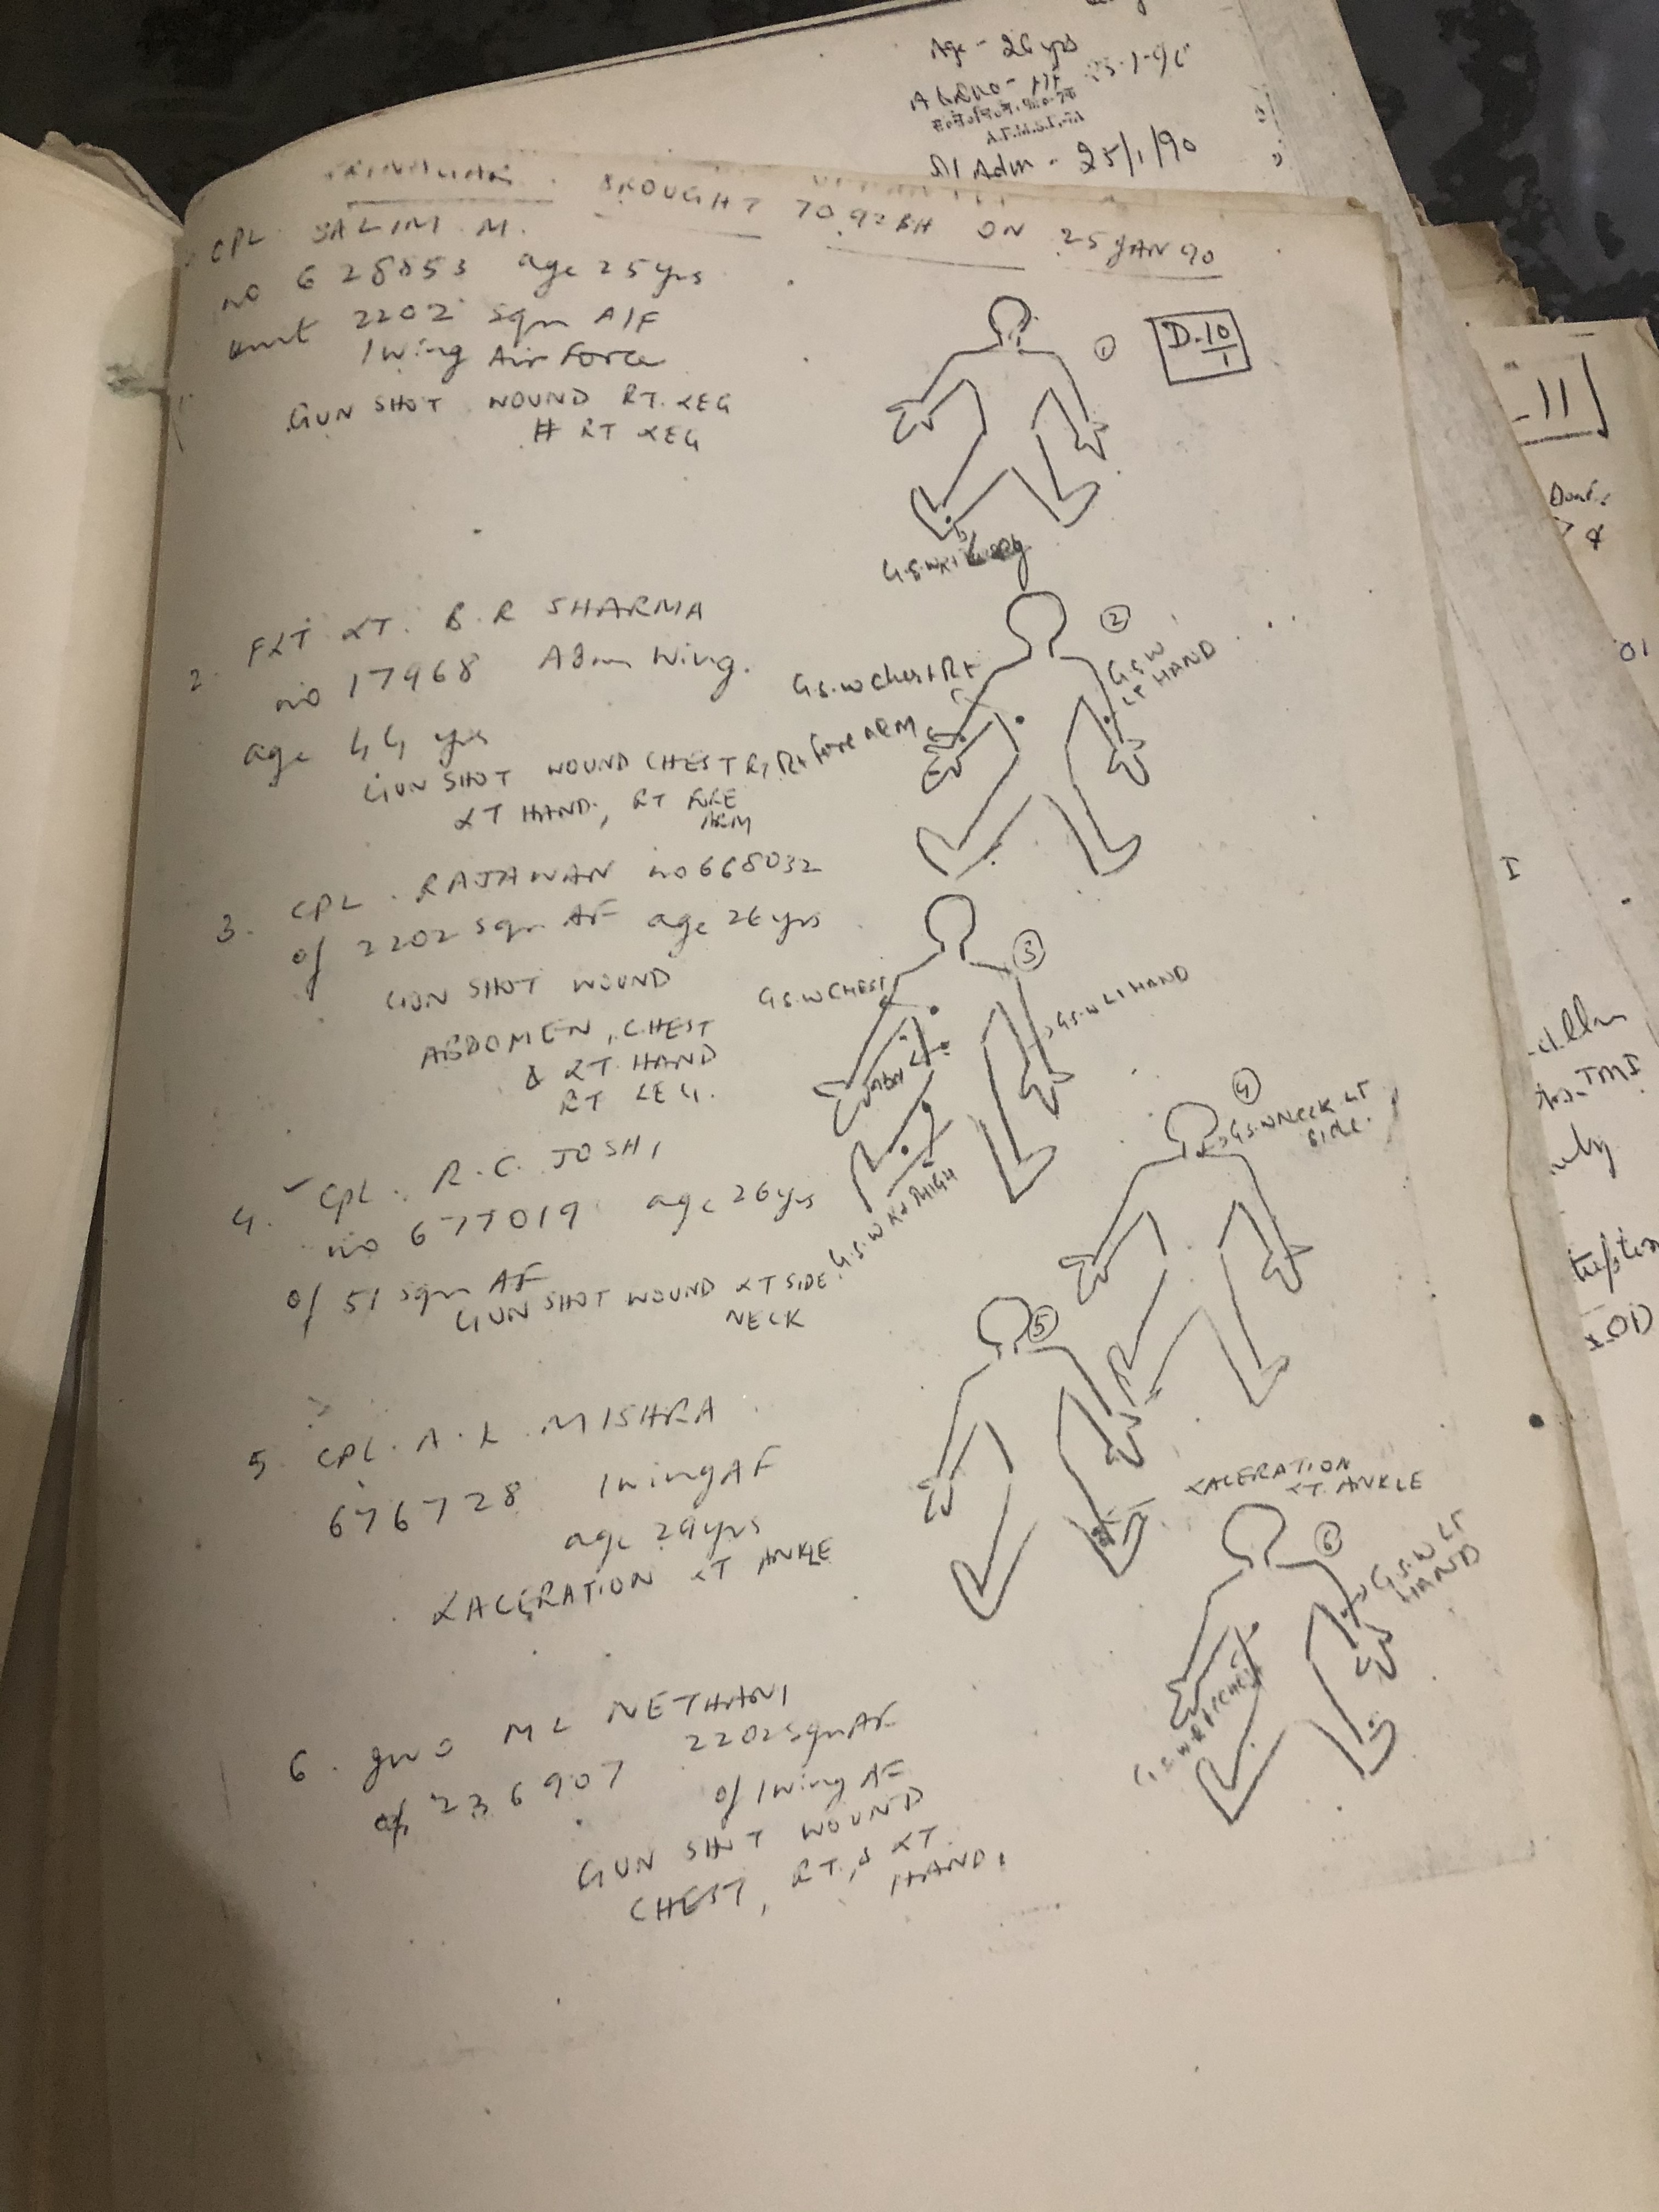 Age - 26 yrs
A.F.M.S.F.-7A
Adm - 25/1/90
BROUGHT TO 92 BH ON 25 JAN 90
CPL SALIM M.
no 628853 age 25 yrs
unit 2202 Sqn A/F
1 wing Air Force
GUN SHOT WOUND RT. LEG
# RT LEG
①
D.10/1
G.S.W RT Leg
2. FLT LT. B.R SHARMA
no 17968 Adm Wing.
age 44 yrs
GUN SHOT WOUND CHEST RT,
LT HAND, RT FORE
ARM
②
G.S.W
LT HAND
G.S.W Chest Rt
Rt fore ARM
3. CPL. RAJAWAN no 668032
of 2202 Sqn AF age 26 yrs
GUN SHOT WOUND
ABDOMEN, CHEST
& LT. HAND
RT LEG.
③
G.S.W CHEST
G.S.W LT HAND
ABD
G.S.W Rt THIGH
4. CPL. R.C. JOSHI
no 677019 age 26 yrs
of 51 Sqn AF
GUN SHOT WOUND LT SIDE
NECK
④
G.S.W NECK LT
SIDE.
5. CPL. A.K. MISHRA
676728 1 wing AF
age 29 yrs
LACERATION LT ANKLE
⑤
LACERATION
LT. ANKLE
6. GWO ML NETHANI
of 236907 2202 Sqn AF
of 1 wing AF
GUN SHOT WOUND
CHEST, RT, & LT
HAND.
⑥
G.S.W LT
HAND
G.S.W RT CHEST
-11
I
01
TMI